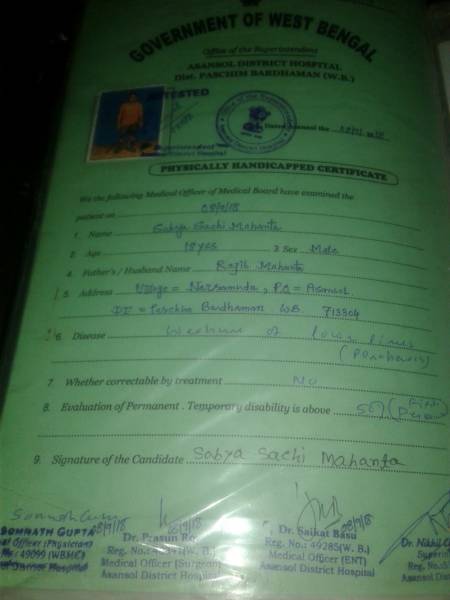 GOVERNMENT OF WEST BENGAL
Office of the Superintendent
ASANSOL DISTRICT HOSPITAL
Dist. PASCHIM BARDHAMAN (W.B.)
Superintendent
District Hospital
Dated Asansol the
PHYSICALLY HANDICAPPED CERTIFICATE
We the following Medical Officer of Medical Board have examined the
patient on 08/9/18
1. Name Sabya Sachi Mahanta
2. Age 18 yrs 3 Sex Male
4. Father's / Husband Name Rajib Mahanta
5. Address Village = Narsamuda, P.O = Asansol
Dist = Paschim Bardhaman WB 713304
6. Disease of
7. Whether correctable by treatment No
8. Evaluation of Permanent . Temporary disability is above
9. Signature of the Candidate Sabya Sachi Mahanta
SOMNATH GUPTA 08/9/18
Officer (Physician)
49099 (WBMC)
District Hospital
Dr. Prasun
Reg. No.: (W. B.)
Medical Officer (Surgeon)
Asansol District Hospital
Dr. Saikat Basu
Reg. No.: 49285(W. B.)
Medical Officer (ENT)
Asansol District Hospital
Dr.
Reg. No.
Asansol Dist